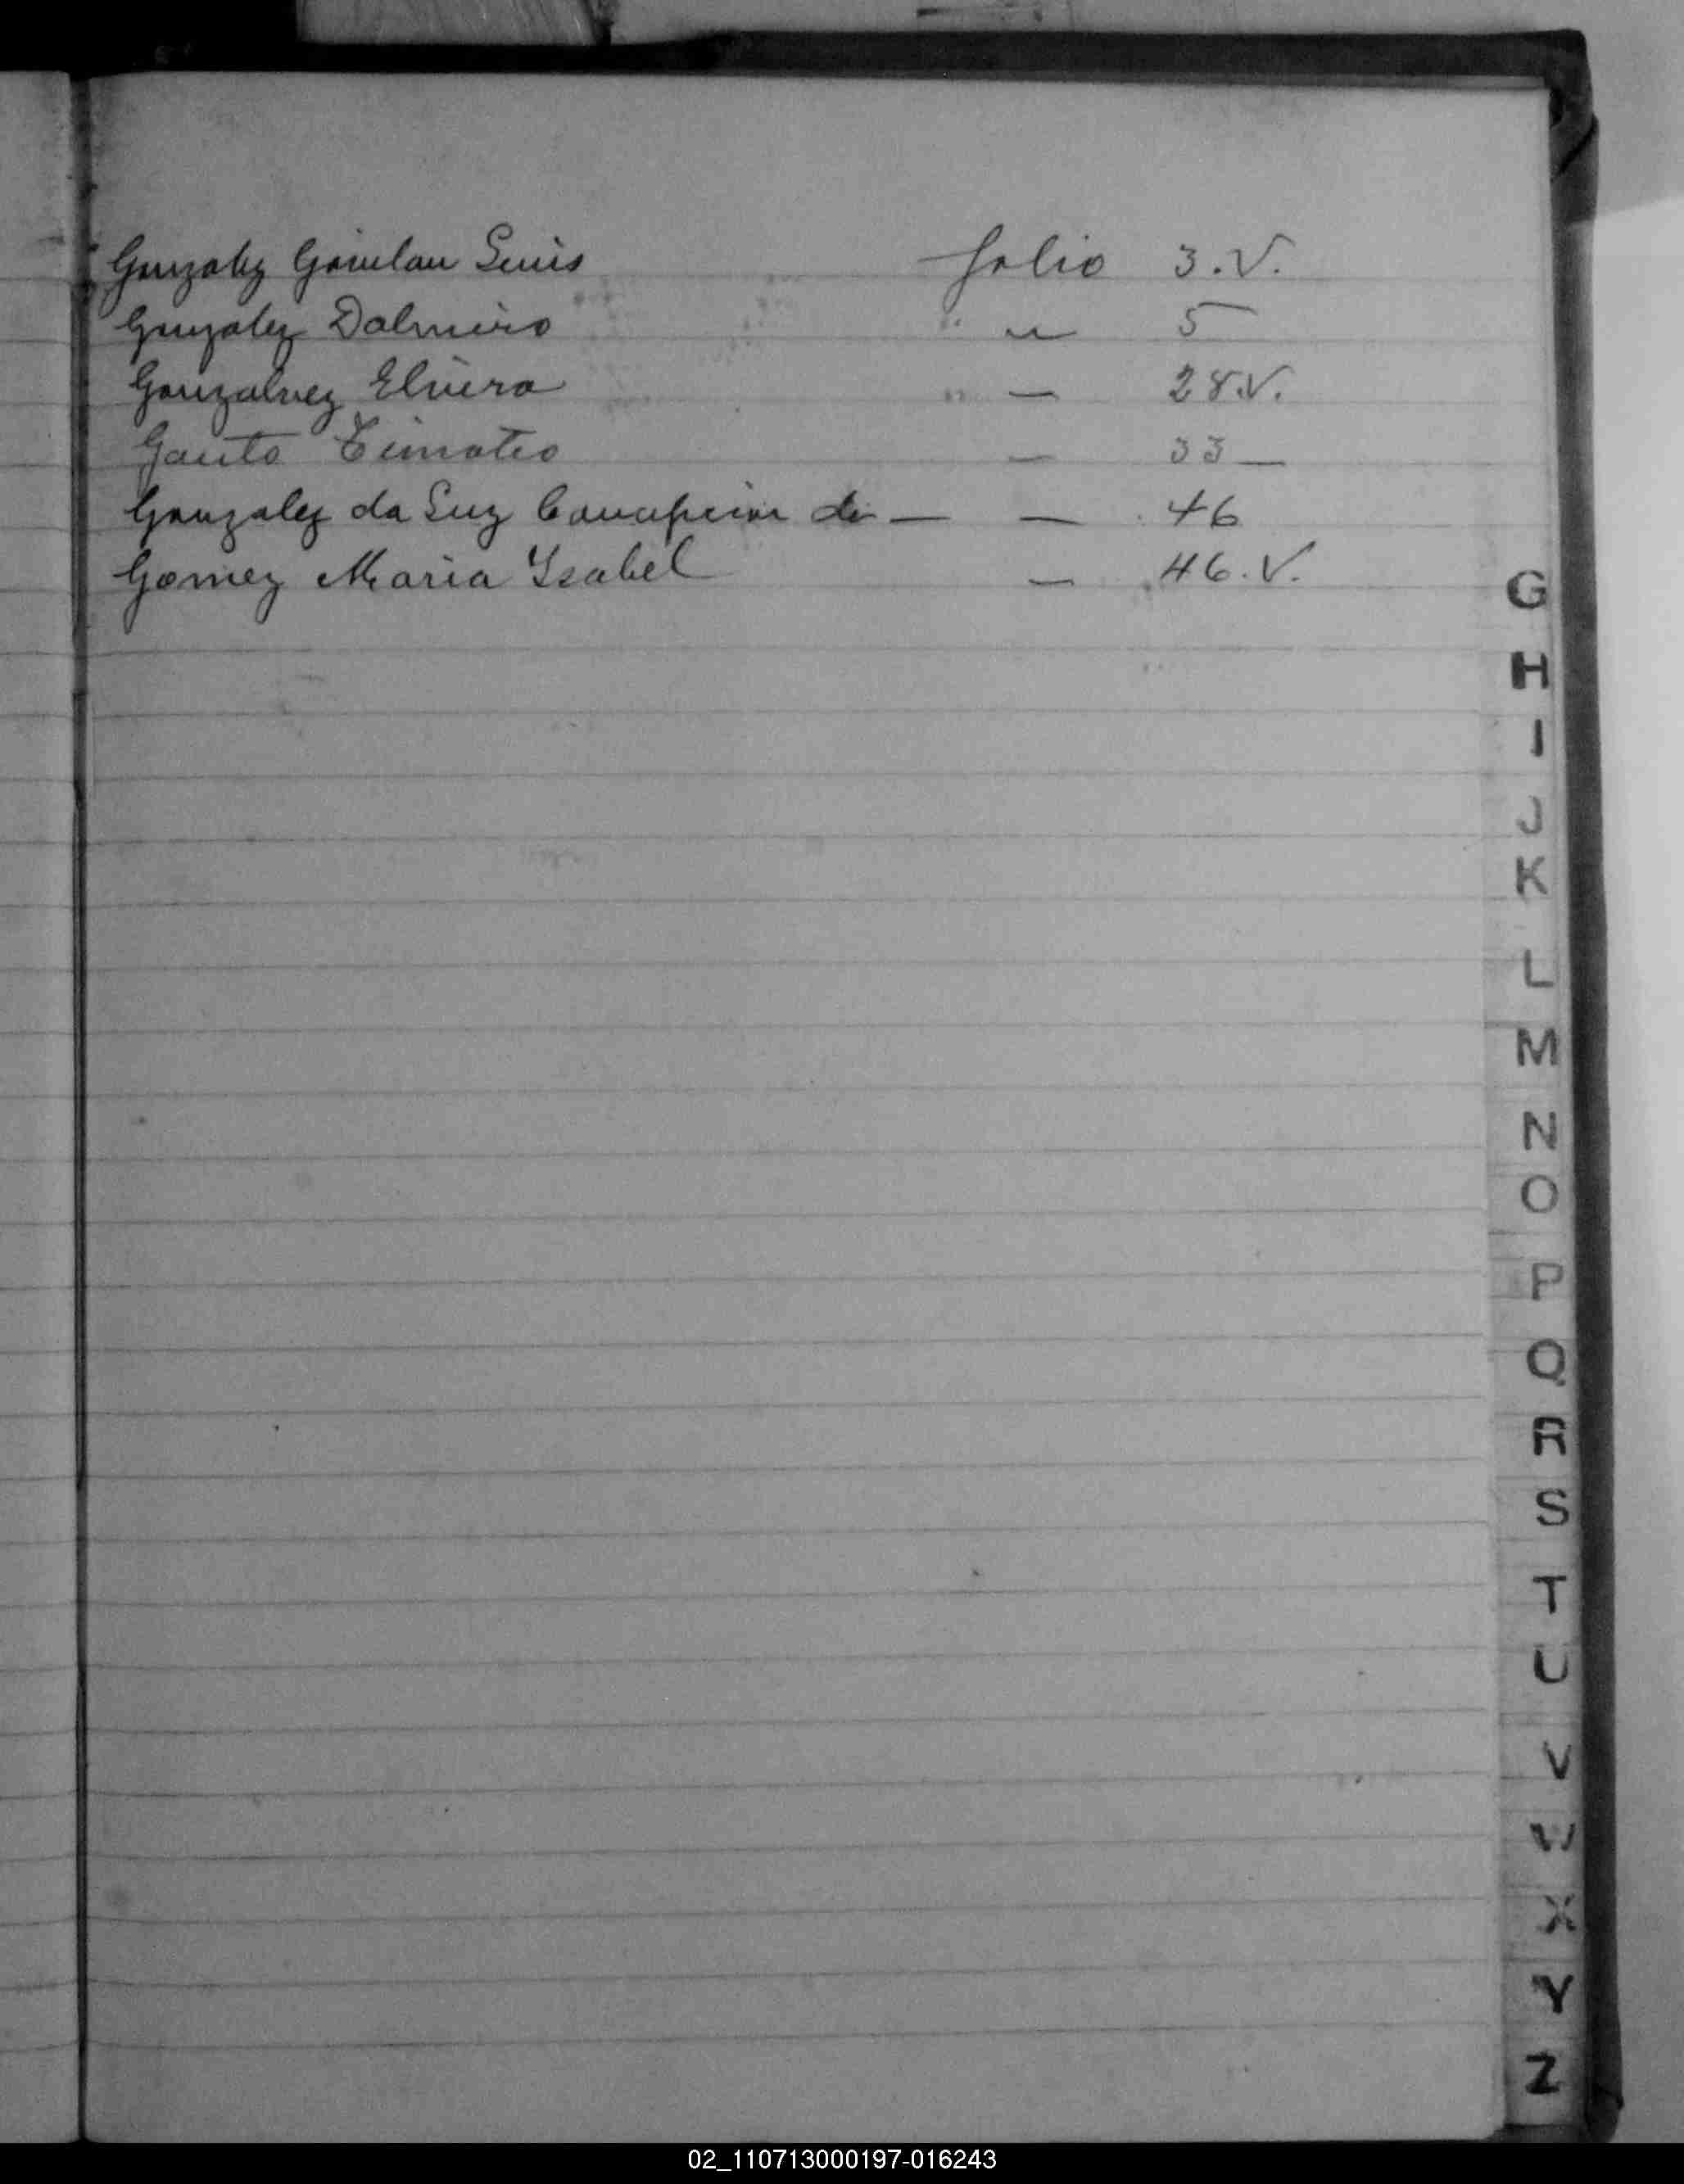 Gonzalez Gavilan Luis folio 3.V.
Gonzalez Dalmiro " 5
Gonzalvez Elvira — 28.V.
Gauto Timoteo — 33 —
Gonzalez da Luz Concepcion de — — 46
Gomez Maria Isabel — 46.V.
G
H
I
J
K
L
M
N
O
P
Q
R
S
T
U
V
W
X
Y
Z
02_110713000197-016243